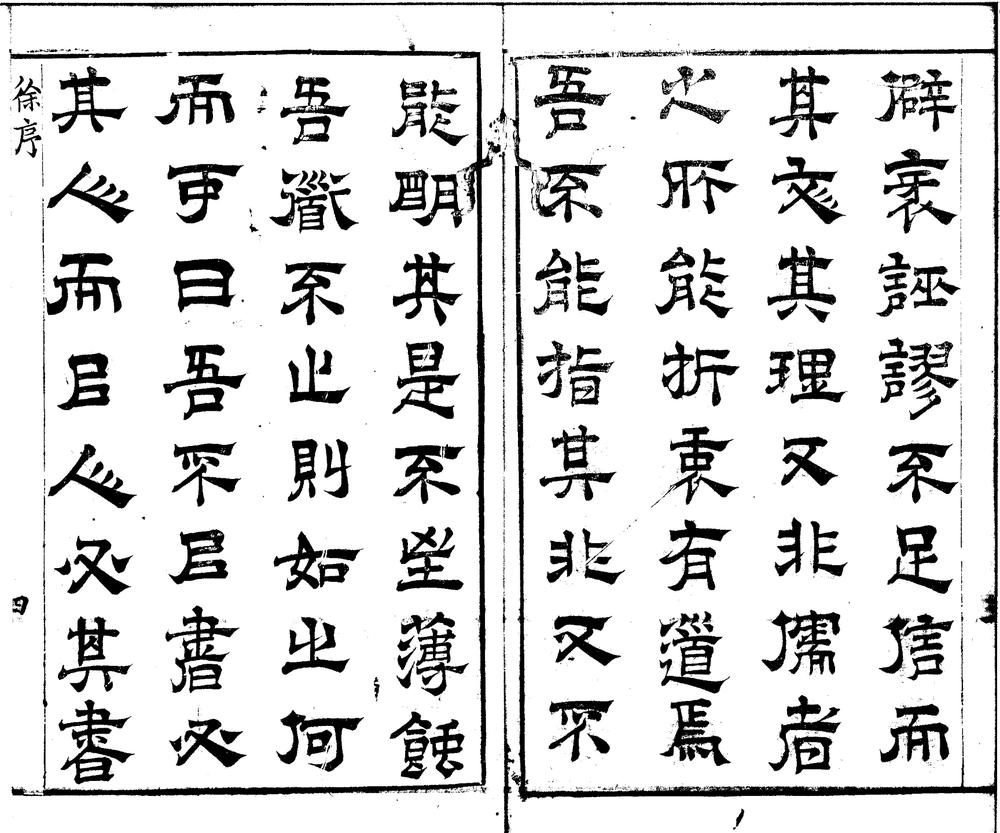 僻衺誣謬不足信而
其文其理又非儒者
之所能折衷有道焉
吾不能指其非又不
能明其是不坐薄蝕
吾道不止則如之何
而可曰吾不以書必
其人而以人必其書
徐序
四